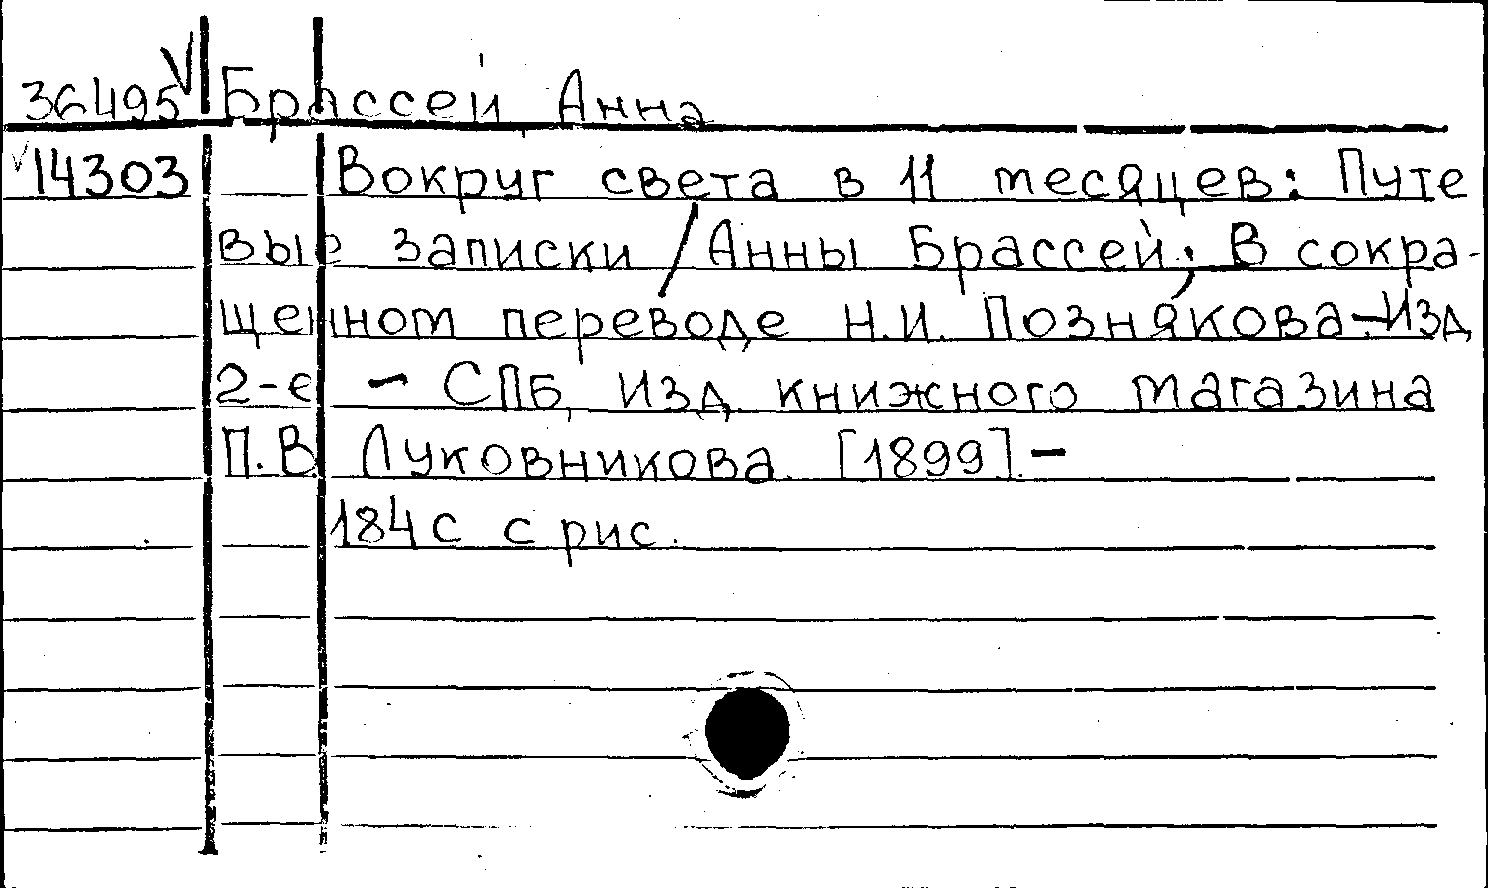 36495 Брассей Анна
14303 Вокруг света в 11 месяцев: Путе
вые записки / Анны Брассей; В сокра-
щенном переводе Н.И. Познякова.-Изд
2-е - СПБ, Изд. книжного магазина
П.В. Луковникова. [1899].-
184 с с рис.